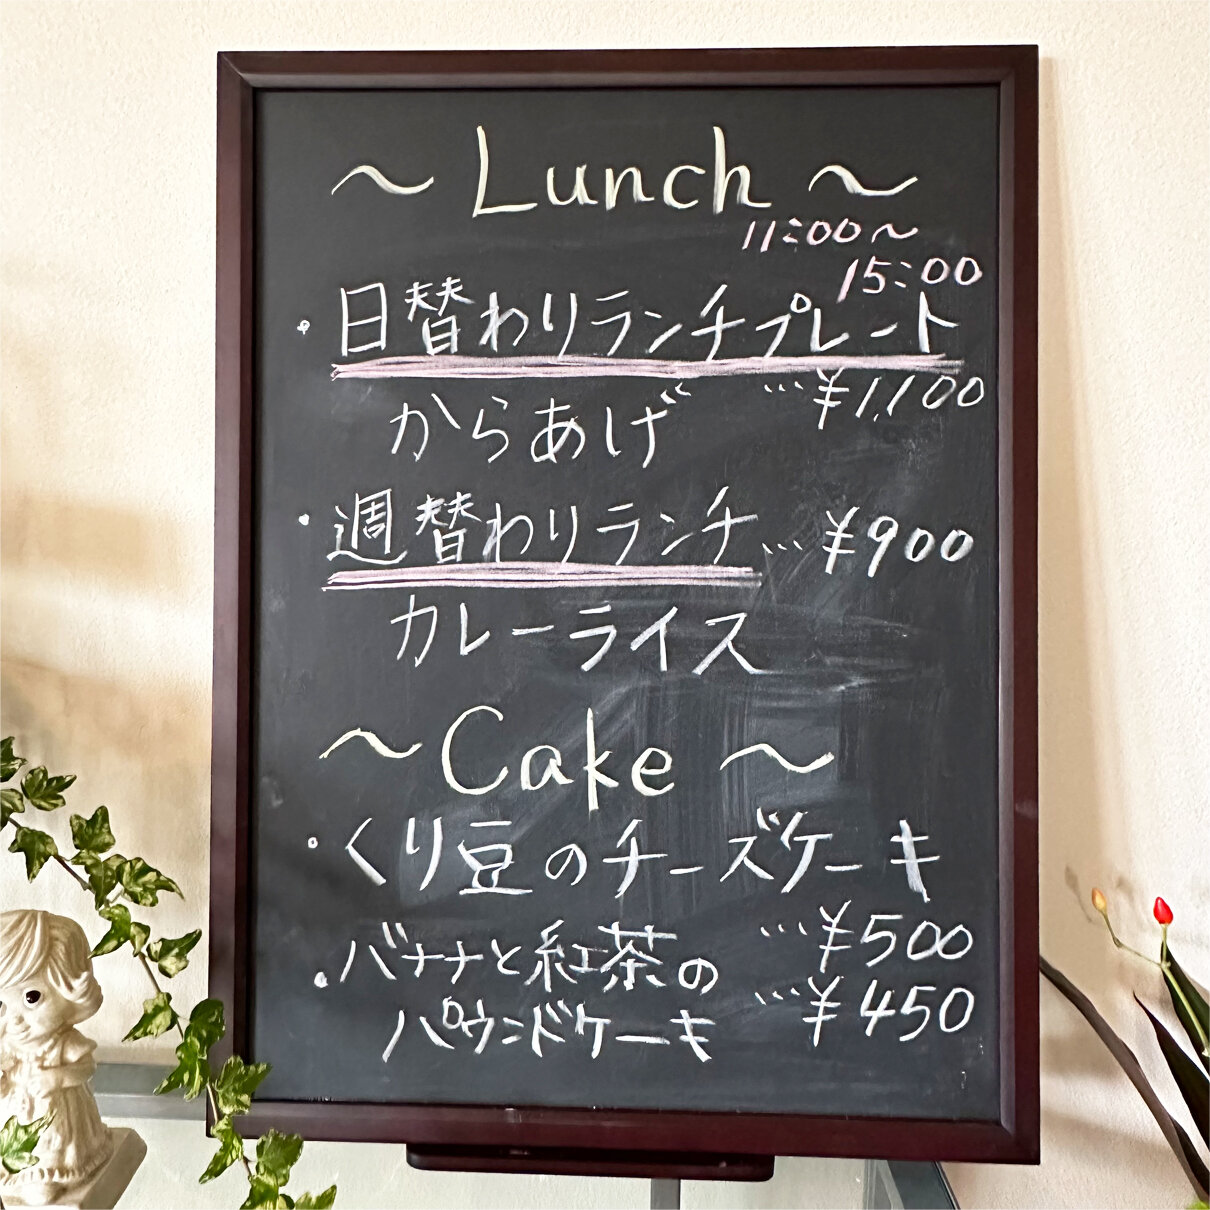 ～ Lunch ～
11:00～
15:00
・日替わりランチプレート
…¥1,100
からあげ
・週替わりランチ…¥900
カレーライス
～Cake～
・くり豆のチーズケーキ
…¥500
・バナナと紅茶の
パウンドケーキ …¥450